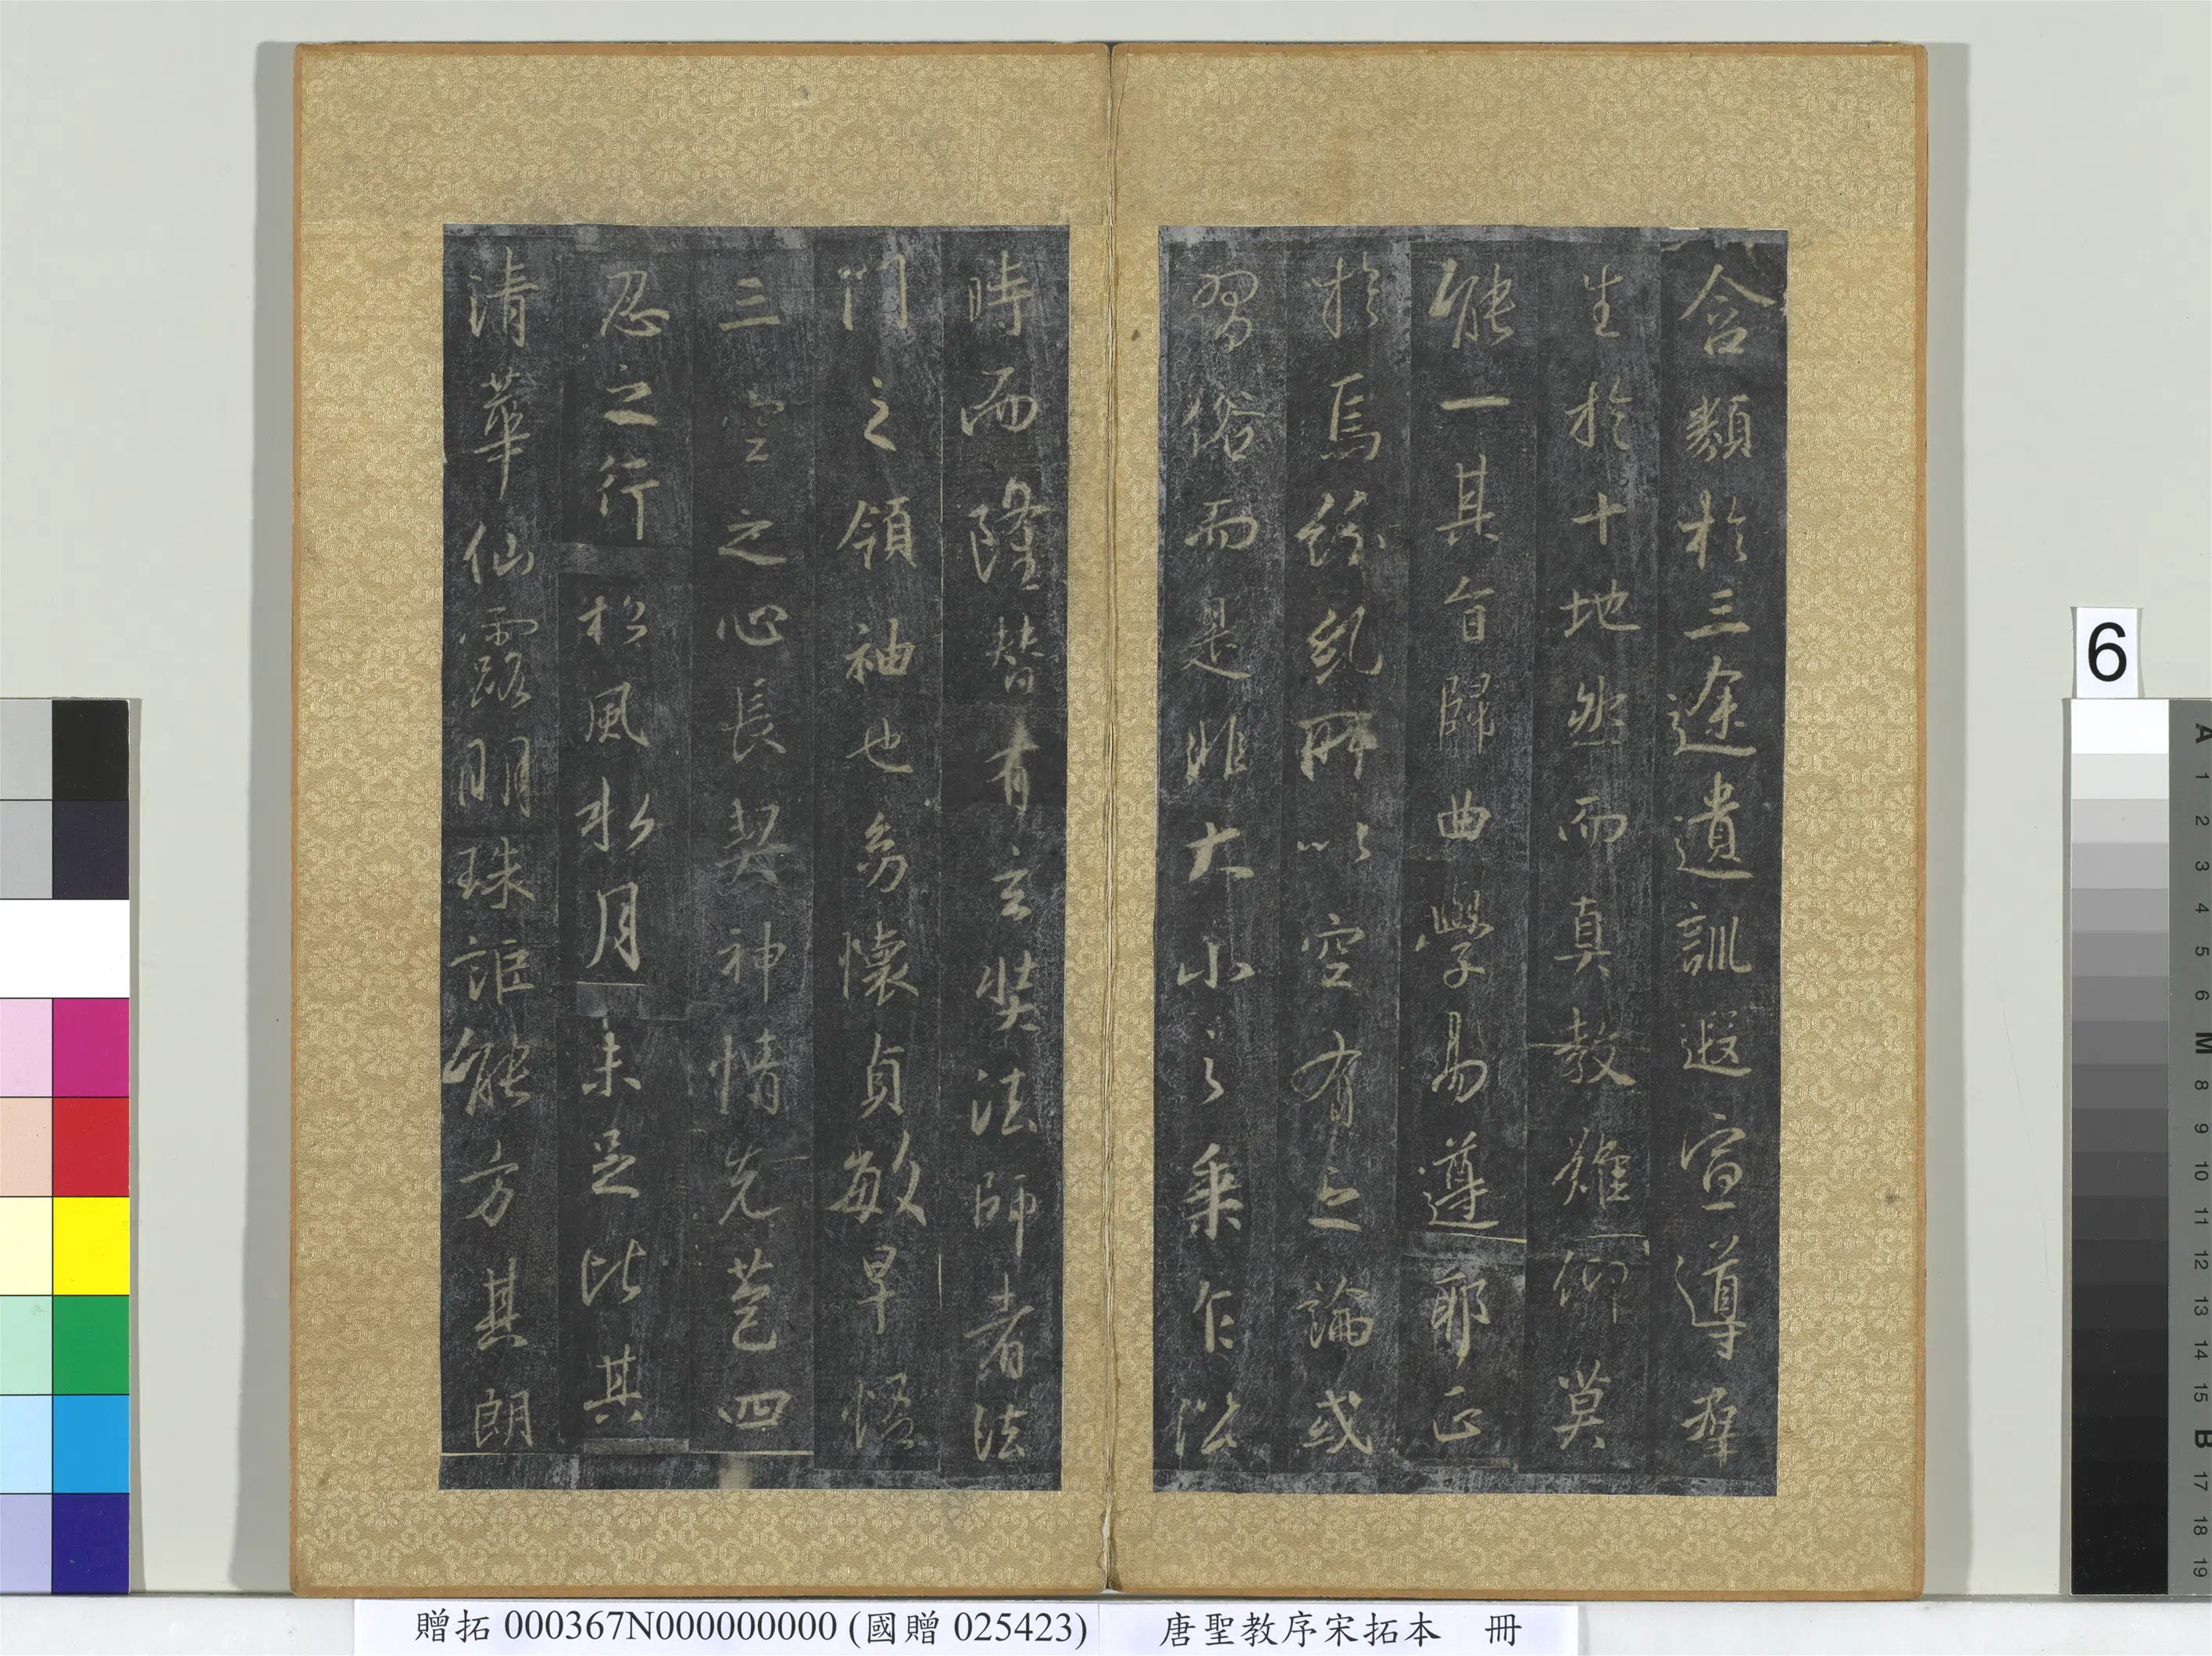 含類於三途遺訓遐宣導群
生於十地然而真教難仰莫
能一其旨歸曲學易遵耶正
於焉紛糺所以空有之論或
習俗而是非大小之乘乍沿
時而隆替有玄奘法師者法
門之領袖也幼懷貞敏早悟
三空之心長契神情先苞四
忍之行松風水月未足比其
清華仙露明珠詎能方其朗
贈拓 000367N000000000 (國贈 025423) 唐聖教序宋拓本 冊
6
A
1
2
3
4
5
6
M
8
9
10
11
12
13
14
15
B
17
18
19